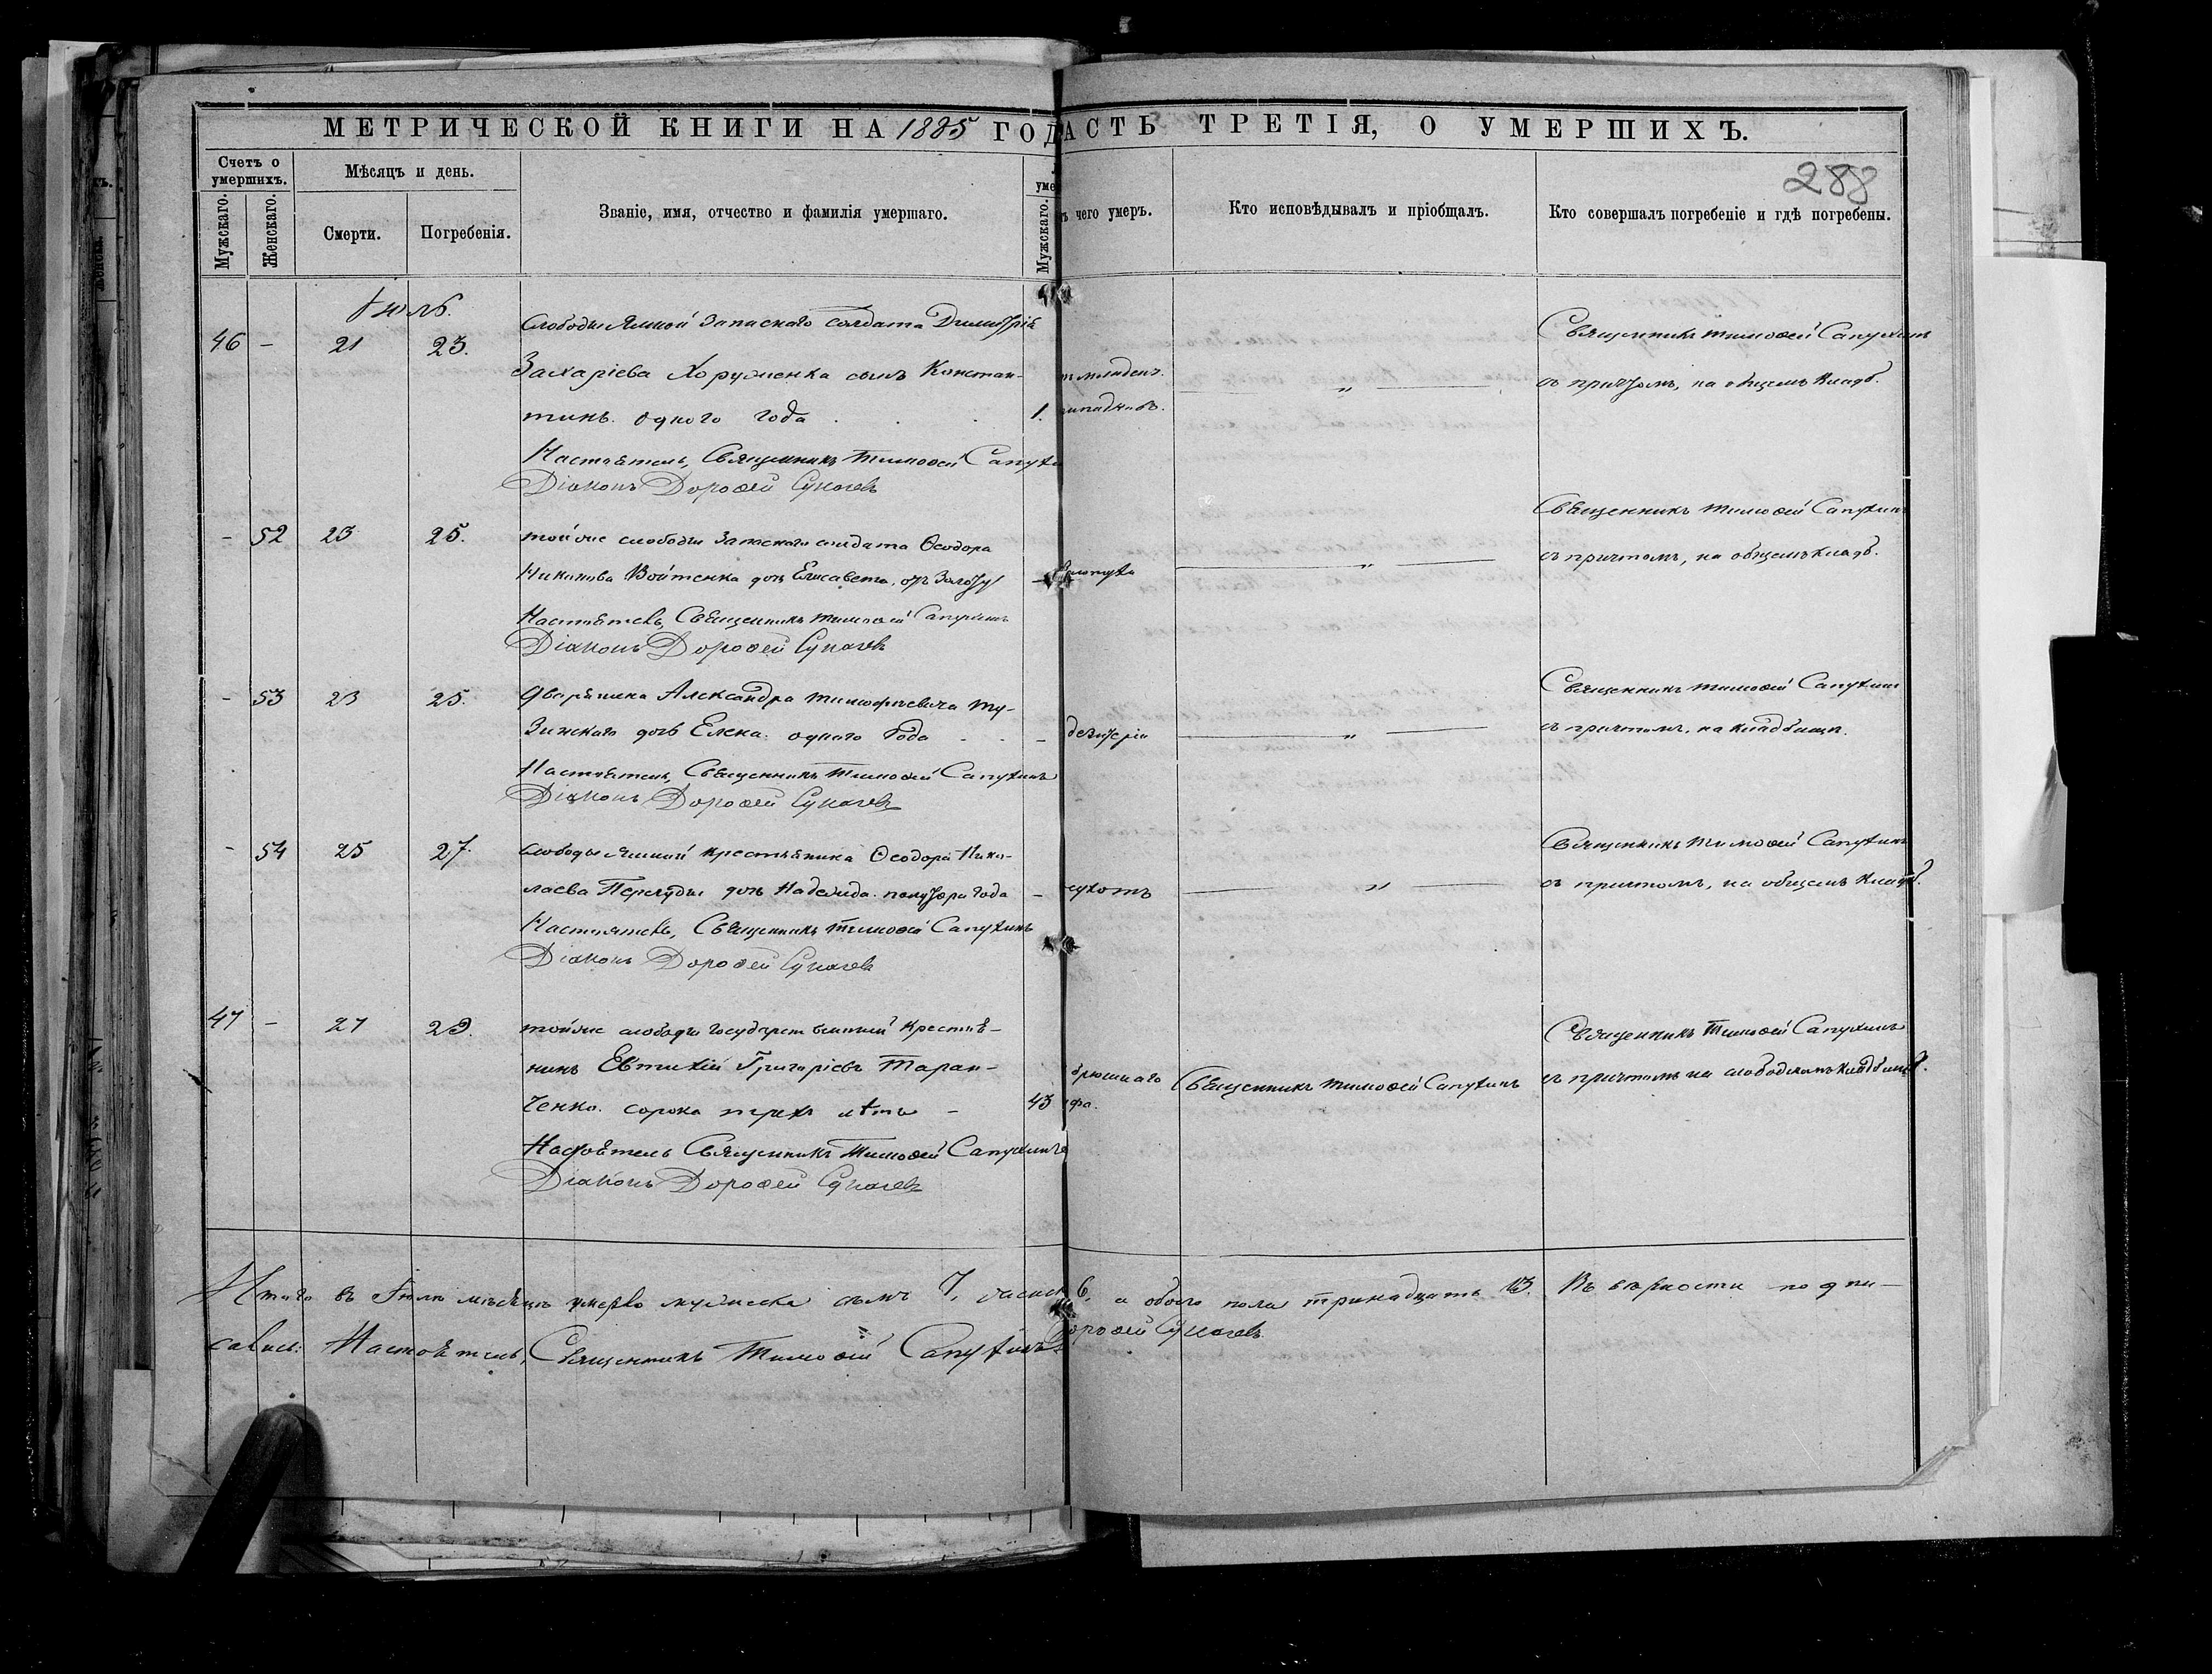 МЕТРИЧЕСКОЙ КНИГИ НА 1885 ГОД
АСТЬ ТРЕТІЯ, О УМЕРШИХЪ.
288
Счетъ о умершихъ.
Мужскаго.
Женскаго.
Мѣсяцъ и день.
Смерти.
Погребенія.
Званіе, имя, отчество и фамилія умершаго.
уме
Мужскаго.
ъ чего умеръ.
Кто исповѣдывалъ и пріобщалъ.
Кто совершалъ погребеніе и гдѣ погребены.
Іюль.
46 - 21 23. Слободы Ямной запаснаго солдата Димитрія
Захаріева Хоруженка сынъ Констан-
тинъ. одного года . . . 1.
младен.
припадковъ.
"
Священникъ Тимоѳей Сапухинъ
съ причтомъ, на общемъ кладб.
Настоятель, Священникъ Тимоѳей Сапухи
Діаконъ Дороѳей Сукачевъ
- 52 23 25. тойже слободы запаснаго солдата Ѳеодора
Никонова Войтенка дочь Елисавета,
"
Священникъ Тимоѳей Сапухинъ
съ причтомъ, на общемъ кладб.
Настоятель, Священникъ Тимоѳей Сапухинъ
Діаконъ Дороѳей Сукачевъ
- 53 23 25. дворянина Александра Тимофѣевича Ту-
зинскаго дочь Елена. одного года - - -
"
Священникъ Тимоѳей Сапухинъ
съ причтомъ, на кладбищѣ.
Настоятель, Священникъ Тимоѳей Сапухинъ
Діаконъ Дороѳей Сукачевъ
- 54 25 27. слободы Ямной крестьянина Ѳеодора Нико-
лаева дочь Надежда. полутора года -
сухотъ
"
Священникъ Тимоѳей Сапухинъ
съ причтомъ, на общемъ кладб.
Настоятель, Священникъ Тимоѳей Сапухинъ
Діаконъ Дороѳей Сукачевъ
47 - 27 29. тойже слободы государственный крестья-
нинъ Евтихій Григоріевъ Таран-
ченко. сорока трехъ лѣтъ - 43
брюшнаго
фа.
Священникъ Тимоѳей Сапухинъ
Священникъ Тимоѳей Сапухинъ
съ причтомъ на слободскомъ кладбищѣ.
Настоятель Священникъ Тимоѳей Сапухинъ
Діаконъ Дороѳей Сукачевъ
Итого въ Іюлѣ мѣсяцѣ умерло мужеска семь 7, женск 6, а обоего пола тринадцать 13. Въ вѣрности подпи-
сались: Настоятель, Священникъ Тимоѳей Сапухинъ
Дороѳей Сукачевъ